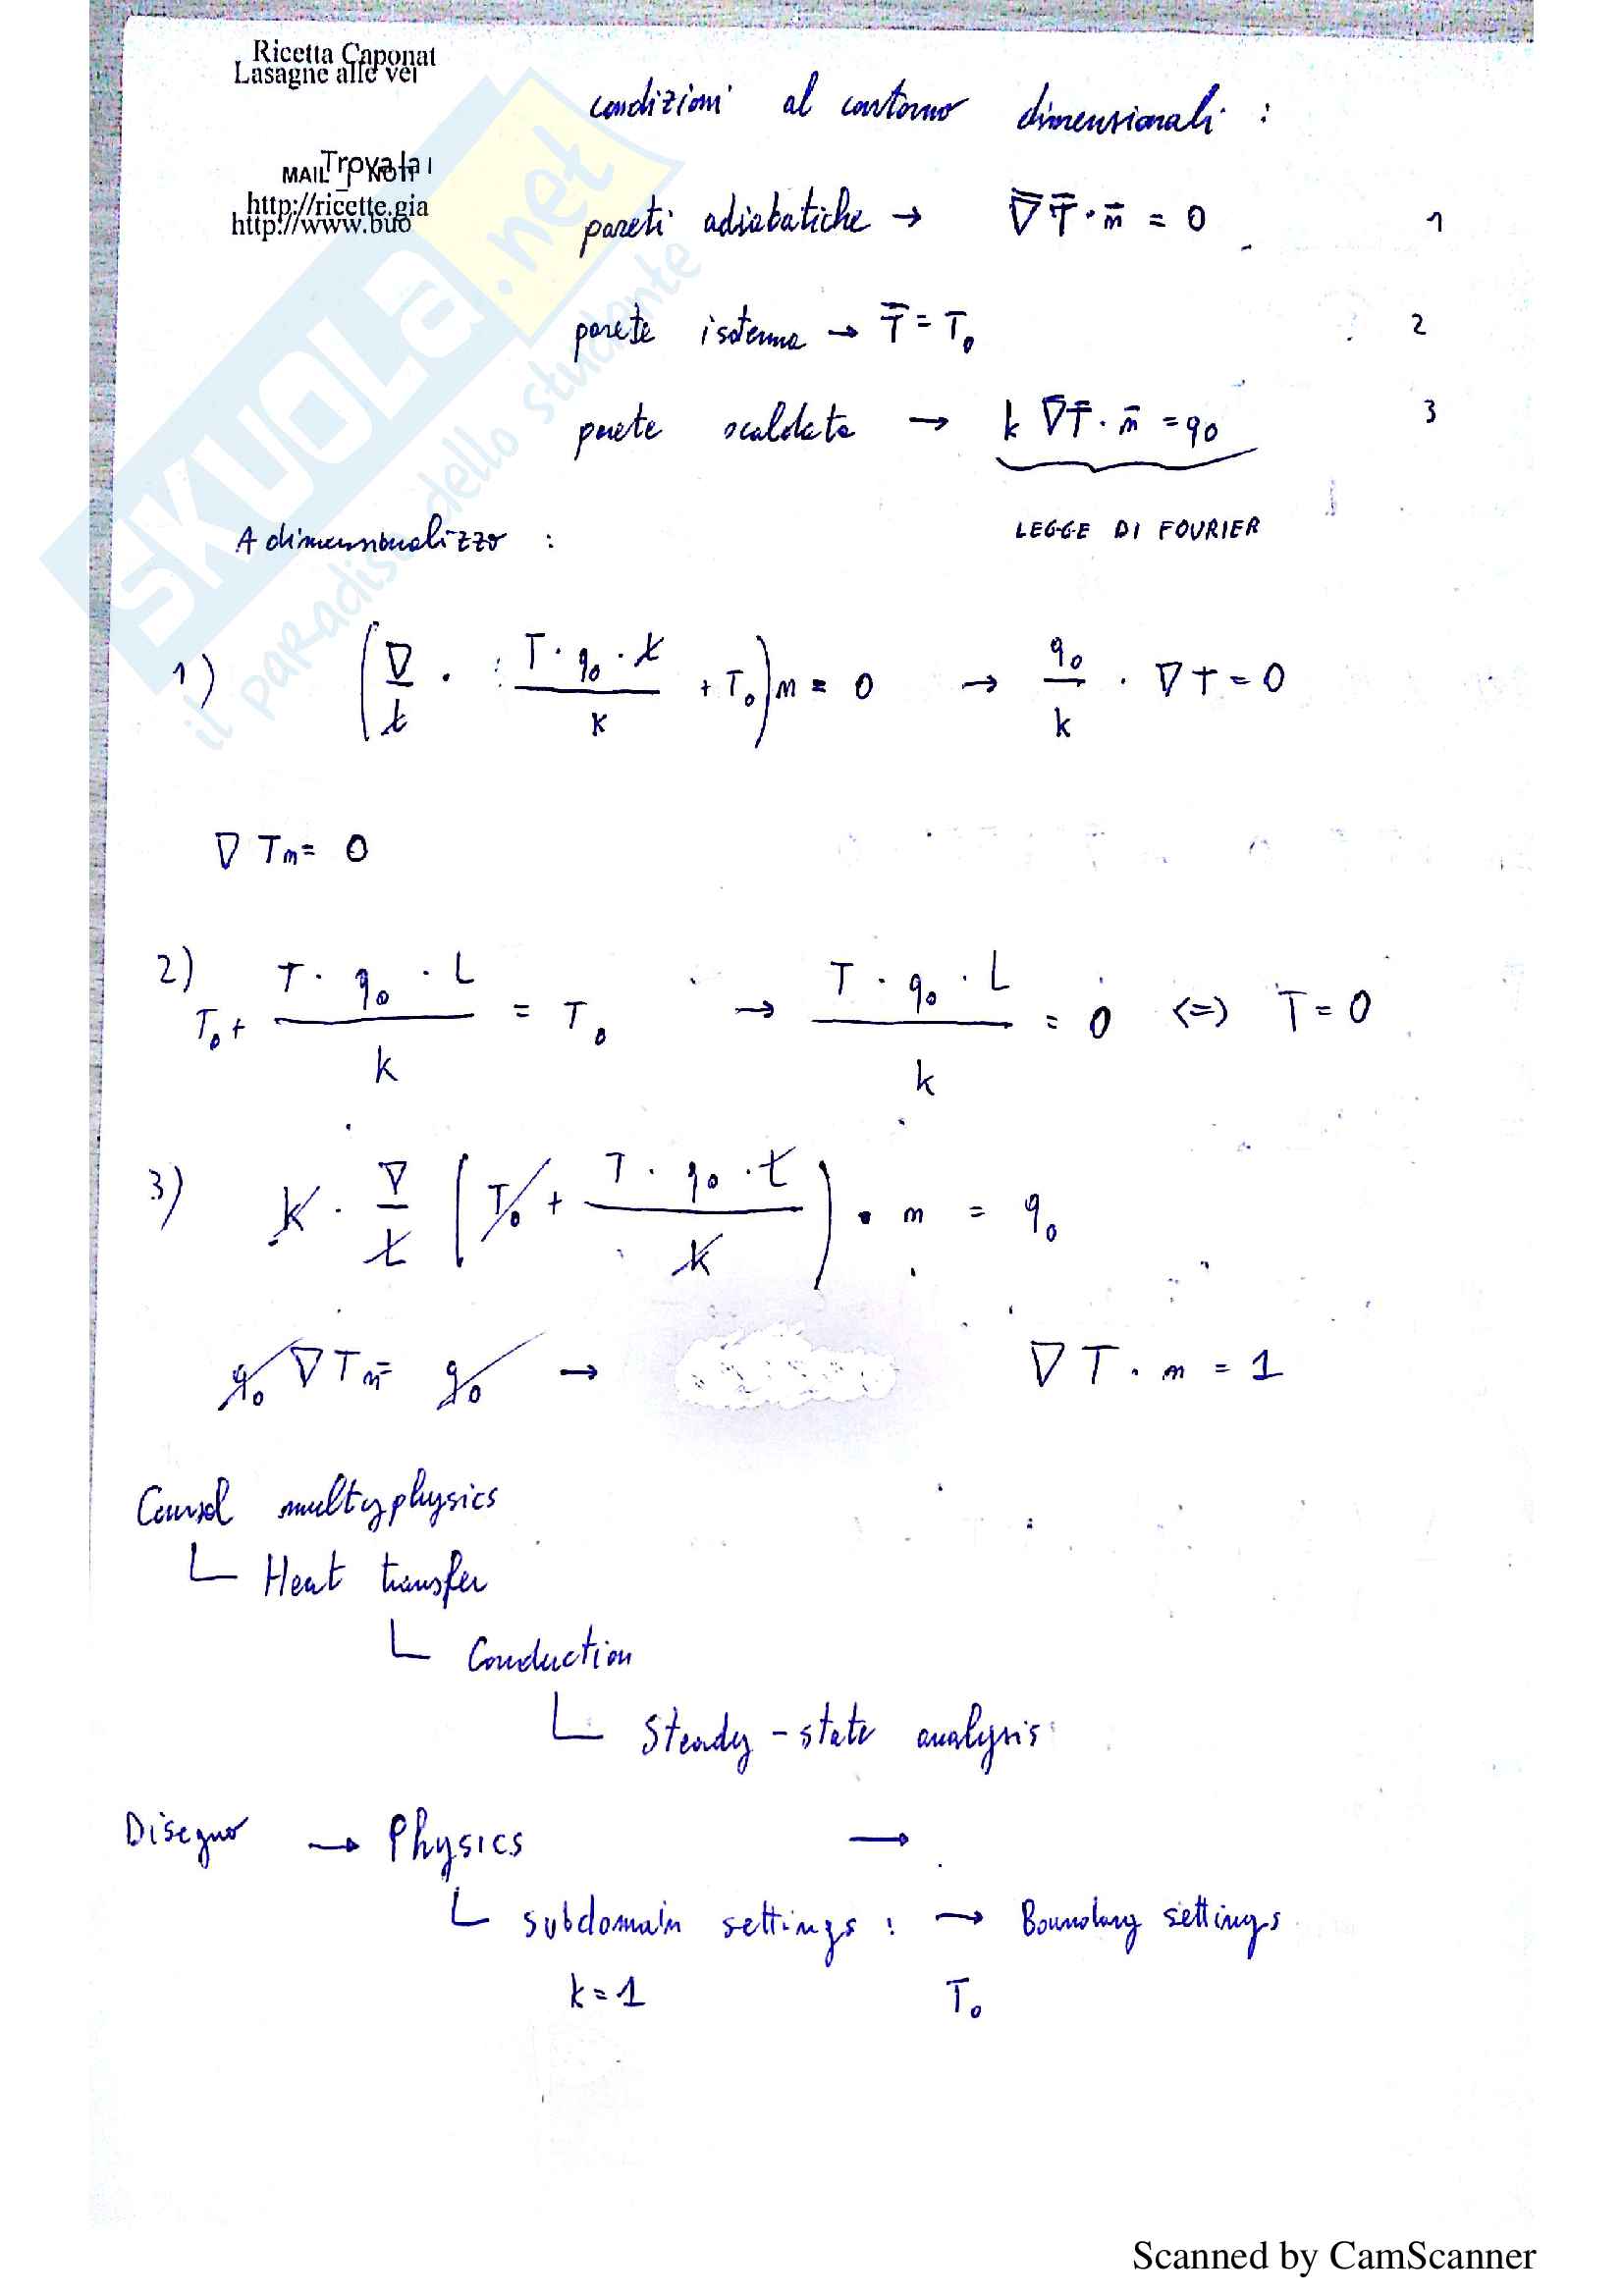 Ricetta Caponat
Lasagne alle ver
condizioni al contorno dimensionali :
MAIL
Trova la
http://ricette.gia
http://www.buo
SKUOLA.net
il paradiso dello studente
pareti adiabatiche → ∇̄ T̄ · n̄ = 0 1
parete isoterma → T̄ = T₀ 2
parete scaldata → k ∇̄T̄ · n̄ = q₀ 3
LEGGE DI FOURIER
Adimensionalizzo :
1) (∇/L · T · q₀ · L / k + T₀) n = 0 → q₀/k · ∇T = 0
∇ Tn = 0
2) T₀ + T · q₀ · L / k = T₀ → T · q₀ · L / k = 0 <=> T = 0
3) k · ∇/L (T₀ + T · q₀ · L / k) · n = q₀
q₀ ∇ Tn = q₀ → ∇ T · n = 1
Comsol multyphysics
Heat transfer
Conduction
Steady-state analysis
Disegno → Physics →
subdomain settings : → Boundary settings
k = 1 T₀
Scanned by CamScanner